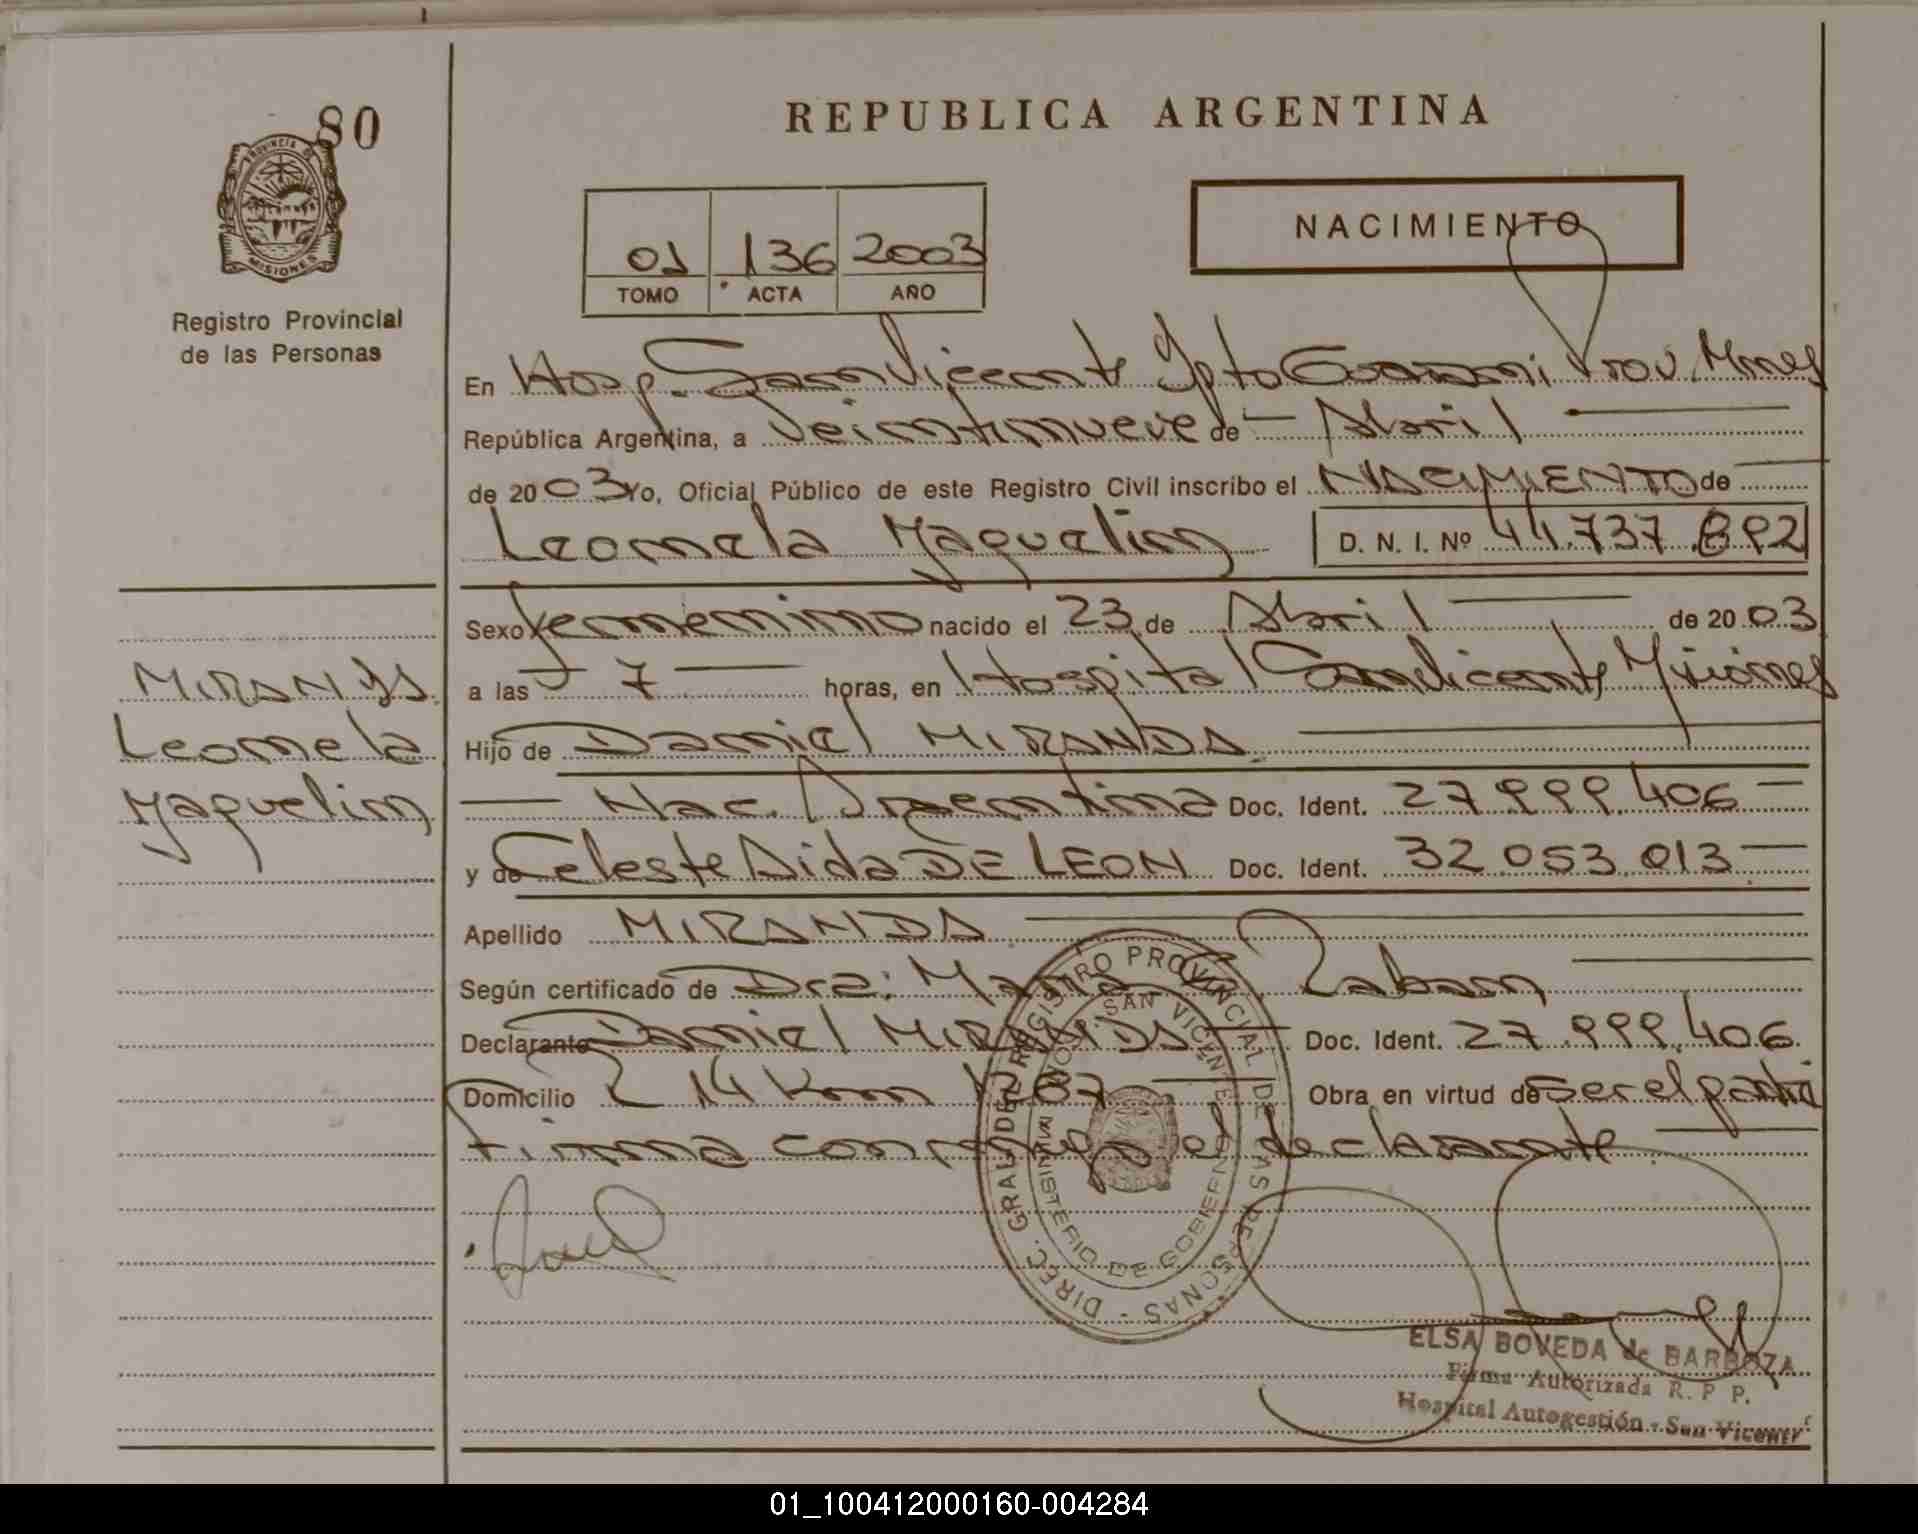 80
REPUBLICA ARGENTINA
PROVINCIA DE
MISIONES
Registro Provincial
de las Personas
01 136 2003
TOMO ACTA AÑO
NACIMIENTO
En Hosp. San Vicente Dpto Guarani Prov. Mnes
República Argentina, a Veintinueve de - Abril
de 2003 Yo, Oficial Público de este Registro Civil inscribo el NACIMIENTO de
Leonela Yaquelin D. N. I. Nº 44.737.892
Sexo femenino nacido el 23 de Abril de 2003
a las 7 horas, en Hospital San Vicente Misiones
Hijo de Daniel MIRANDA
Nac. Argentina Doc. Ident. 27.999.406
y de Celeste Aida DE LEON Doc. Ident. 32.053.013
Apellido MIRANDA
Según certificado de Dra: Maria Rabam
Declarante Daniel MIRANDA Doc. Ident. 27.999.406
Domicilio R 14 Km 1287 Obra en virtud de Ser el padre
Firma conmigo el declarante
MIRANDA
Leonela
Yaquelin
DIREC. GRAL. DEL REGISTRO PROVINCIAL DE LAS PERSONAS
SAN VICENTE
MINISTERIO DE GOBIERNO
ELSA BOVEDA de BARBOZA
Firma Autorizada R. P P.
Hospital Autogestión - San Vicente
01_100412000160-004284